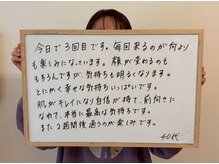 今日で3回目です。毎回来るのが何より
も楽しみになっています。顔が変わるのも
もちろんですが、気持ちも明るくなります。
とにかく幸せな気持ちいっぱいです。
肌がキレイになり自信が持て、前向きに
なれて、本当に最高な気持ちです。
また2週間後通うのが楽しみです。
40代